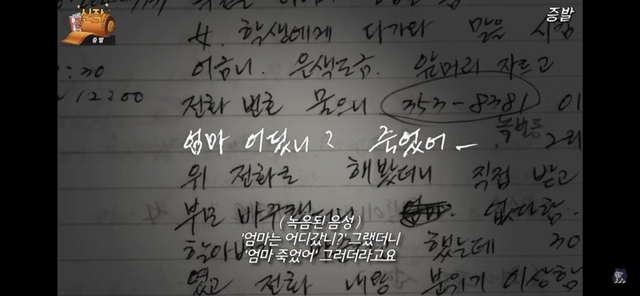 신작
증발
증발
4. 학생에게 다가와 말을 시킴
어금니. 은색도금. 앞머리 자르고
:30
12200
전화 번호 물으니 353-8381 이
엄마 어딨니? 죽었어 -
그리
위 전화로 해봤더니 직접 받고
부모 바꾸
없다함.
(녹음된 음성)
'엄마는 어디갔니?' 그랬더니
할아버
했는데 30
'엄마 죽었어' 그러더라고요
였고 전화 내용 분위기 이상함